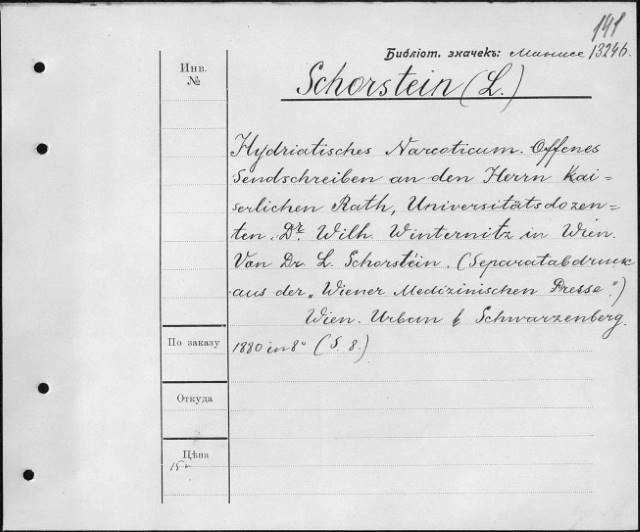 191
Библіот. значекъ: 13246.
Инв.
№
Schorstein (L.)
Hydriatisches Narcoticum. Offenes
Sendschreiben an den Herrn Kai=
serlichen Rath, Universitätsdozen=
ten. Dr. Wilh. Winternitz in Wien.
Von Dr. L. Schorstein. (Separatabdruck
aus der „Wiener Medizinischen Presse".)
Wien. Urban & Schwarzenberg.
По заказу
1880 in 8° (S. 8.)
Откуда
Цѣна